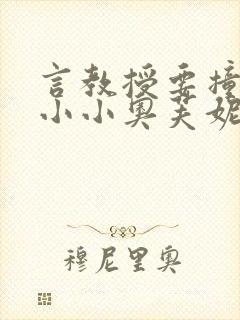 言教授要撞
小小奥芙妮
穆尼里奥